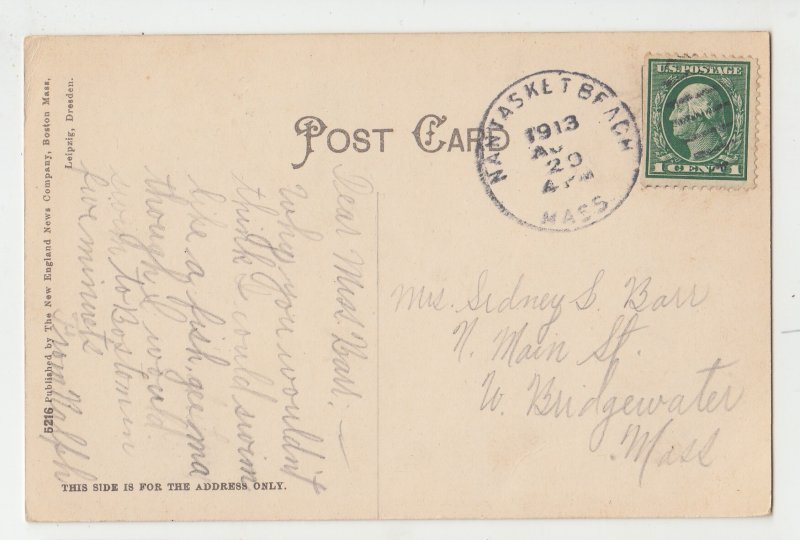 POST CARD
NANTASKET BEACH
1913
AU
29
4 PM
MASS.
U.S. POSTAGE
1 CENT 1
Mrs. Sidney S. Barr
N. Main St.
W. Bridgewater
Mass
Dear Miss. Barr:—
Why you wouldn't
think I could swim
like a fish, gee ma
though I would
swim to Boston in
five minnets
From Ralph
5216 Published by The New England News Company, Boston Mass,
Leipzig, Dresden.
THIS SIDE IS FOR THE ADDRESS ONLY.